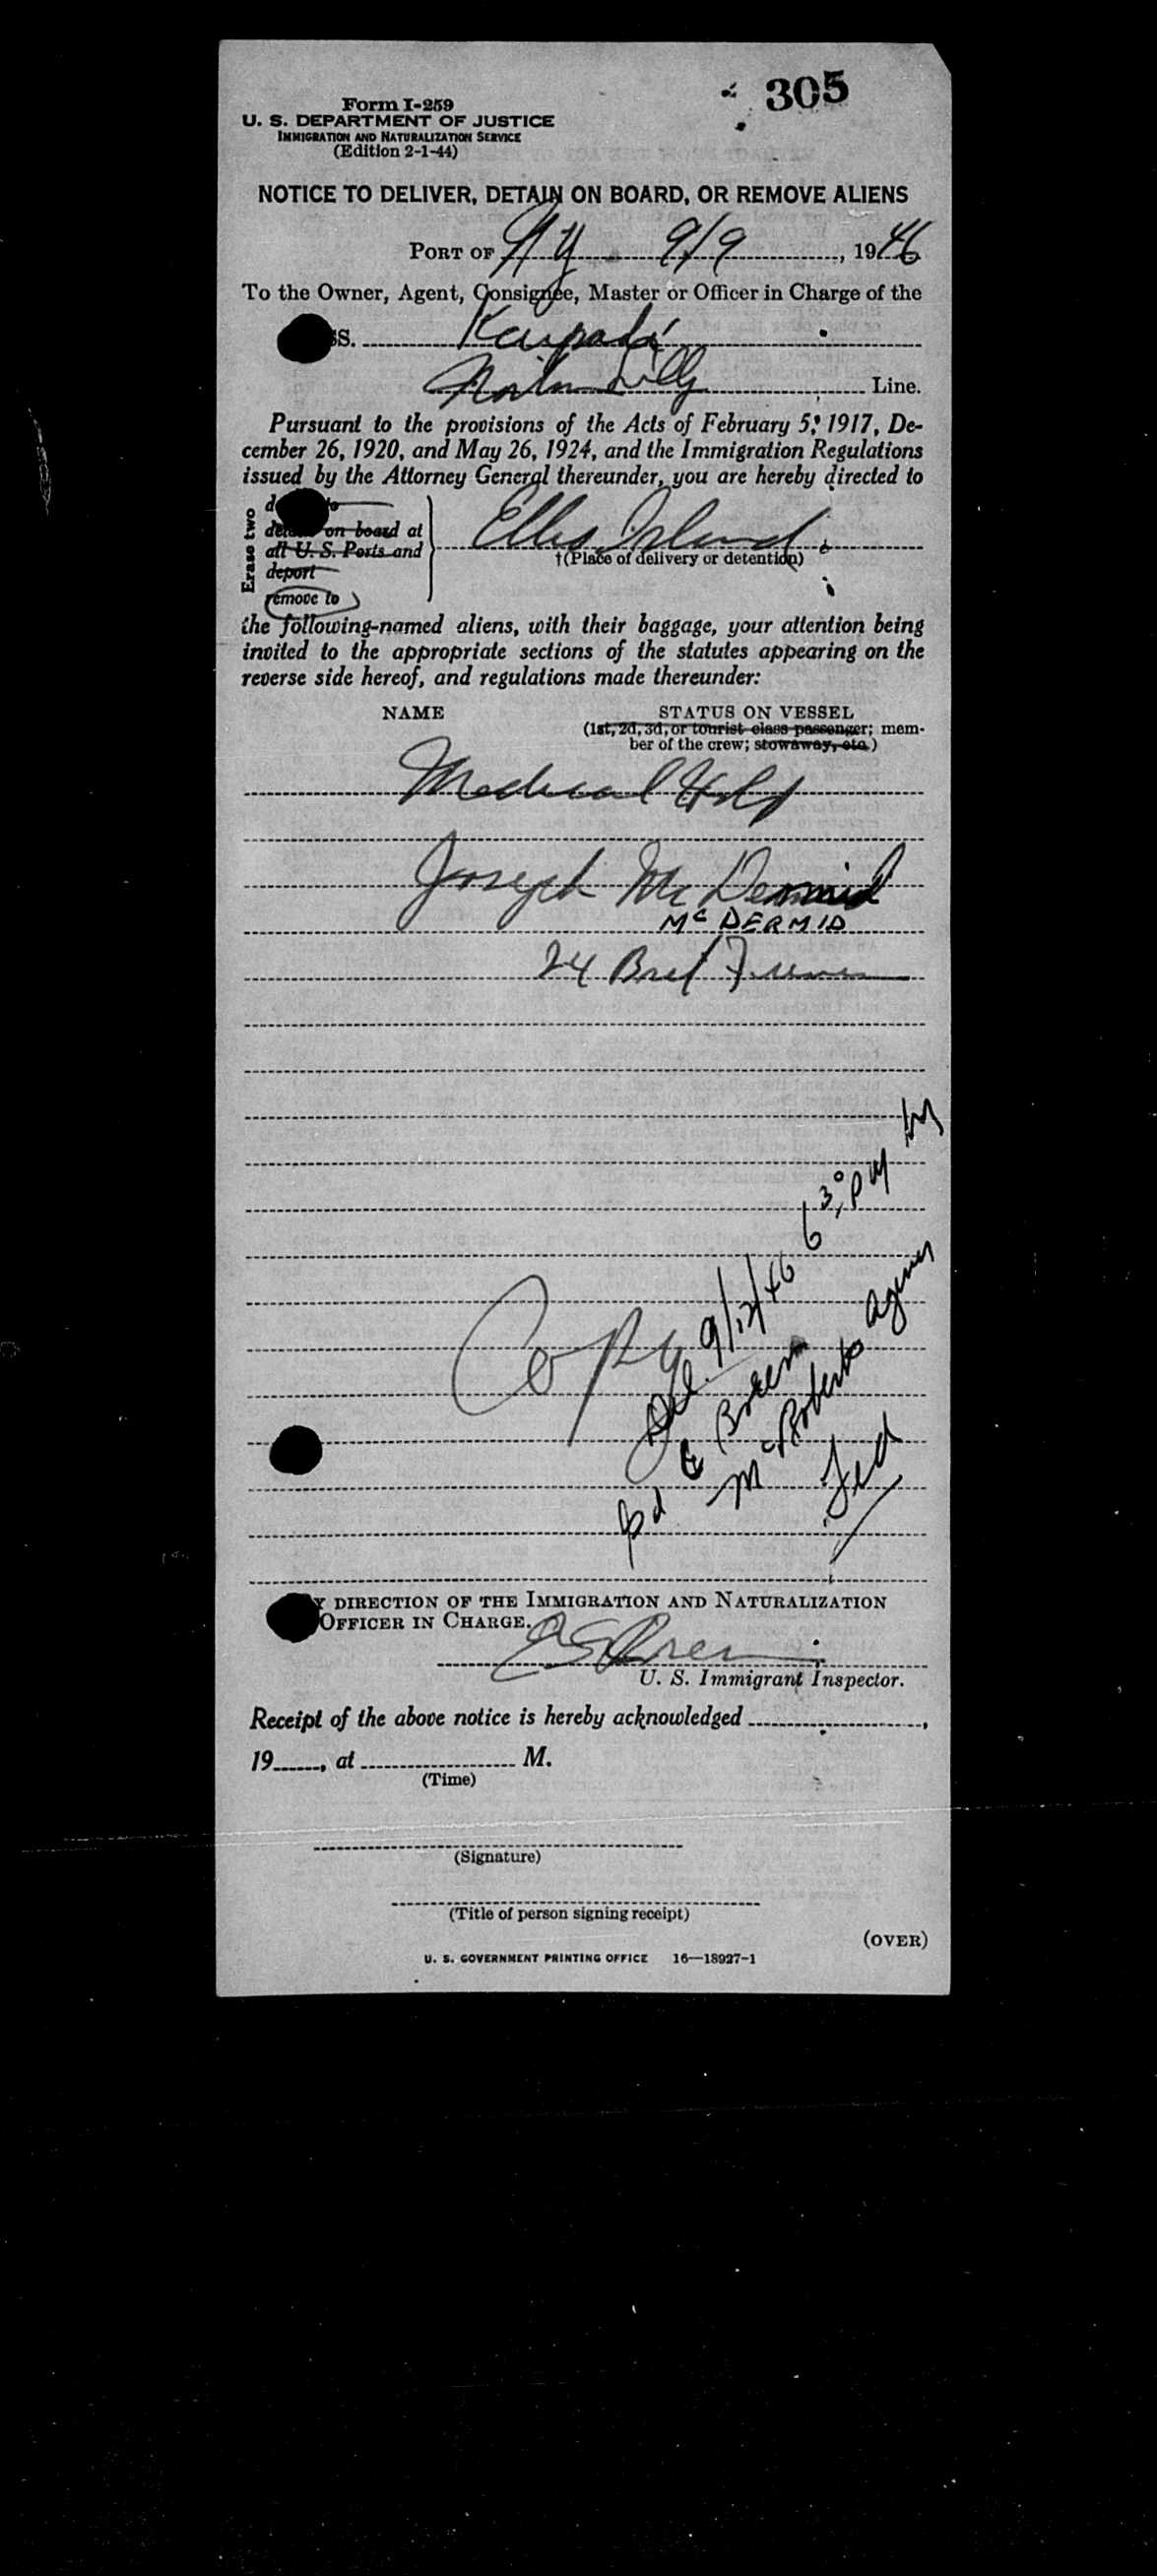 305
Form I-259
U. S. DEPARTMENT OF JUSTICE
IMMIGRATION AND NATURALIZATION SERVICE
(Edition 2-1-44)
NOTICE TO DELIVER, DETAIN ON BOARD, OR REMOVE ALIENS
PORT OF NY 9/9, 1946
To the Owner, Agent, Consignee, Master or Officer in Charge of the
SS.
Norton Lilly Line.
Pursuant to the provisions of the Acts of February 5, 1917, De-
cember 26, 1920, and May 26, 1924, and the Immigration Regulations
issued by the Attorney General thereunder, you are hereby directed to
Erase two
on board at
all U. S. Ports and
deport
remove to
Ellis Island
†(Place of delivery or detention)
the following-named aliens, with their baggage, your attention being
invited to the appropriate sections of the statutes appearing on the
reverse side hereof, and regulations made thereunder:
NAME STATUS ON VESSEL
(1st, 2d, 3d, or tourist class passenger; mem-
ber of the crew; stowaway, etc.)
Medical Hold
Joseph McDermid
McDERMID
24 Brit
Copy
Del. 9/12/46 6 30 PM by
McRoberts Agency
By direction of the Immigration and Naturalization
Officer in Charge.
U. S. Immigrant Inspector.
Receipt of the above notice is hereby acknowledged ,
19 , at M.
(Time)
(Signature)
(Title of person signing receipt)
(OVER)
U. S. GOVERNMENT PRINTING OFFICE 16—18927-1